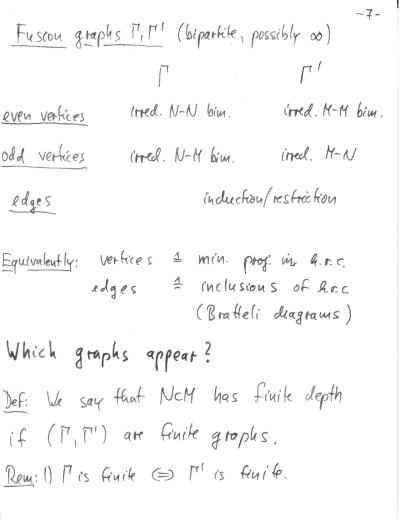 -7-
Fusion graphs Γ, Γ' (bipartite, possibly ∞)
Γ Γ'
even vertices irred. N-N bim. irred. M-M bim.
odd vertices irred. N-M bim. irred. M-N
edges induction/restriction
Equivalently: vertices ≙ min. proj. in h.r.c.
edges ≙ inclusions of h.r.c
(Bratteli diagrams)
Which graphs appear?
Def: We say that N⊂M has finite depth
if (Γ, Γ') are finite graphs.
Rem: 1) Γ is finite ⇔ Γ' is finite.